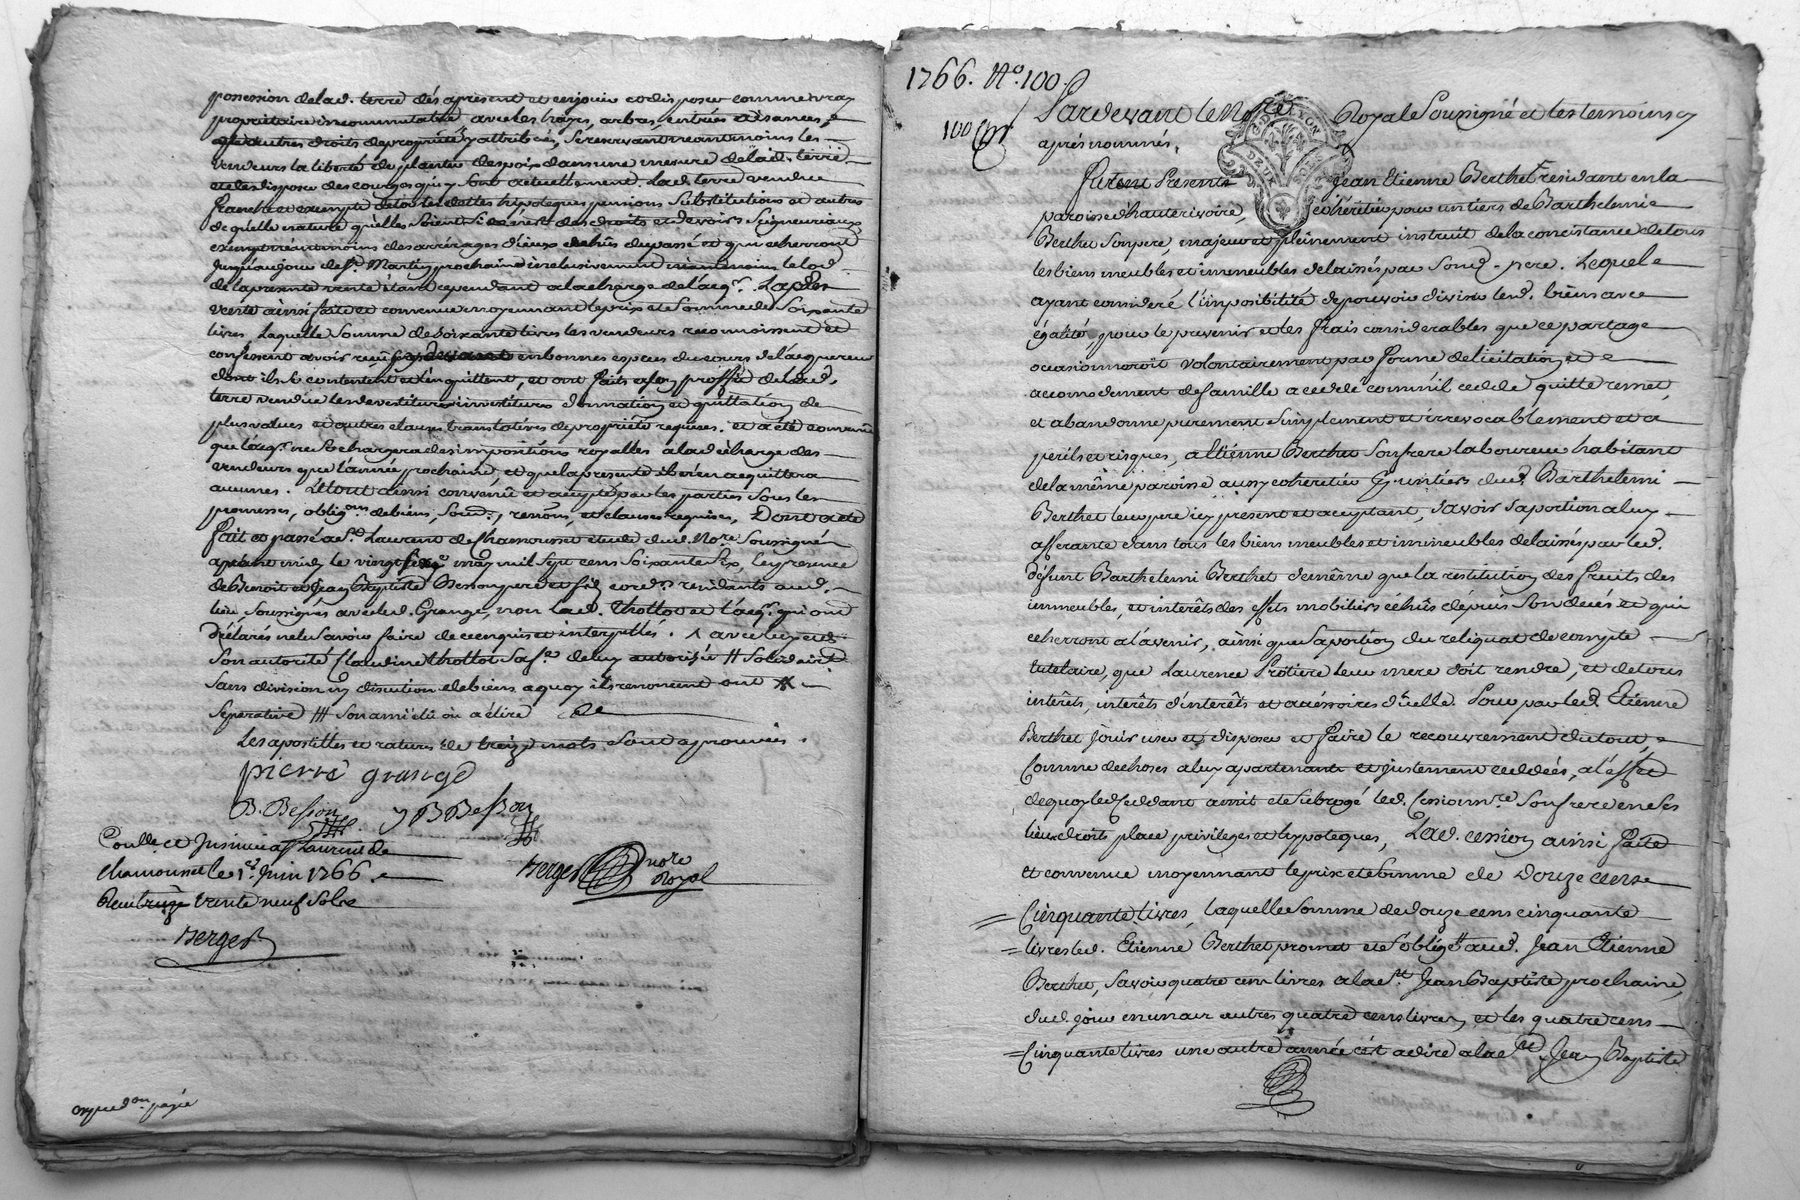 possession de lad. terre dés aprésent et en jouir et disposer comme vray
propriétaire incommutable avec les hayes, arbres, entrées aisances, &
autres droits de propriété y attribués, se reservant néantmoins les
vendeurs la liberté de planter des poix dans une mesure de lad. terre
et de disposer des courges qui y sont actuellement. Lad. terre vendue
franche et exempte de toutes dettes hipoteques pensions substitutions et autres
de quelle nature qu'elles soient si ce n'est des droits et devoirs seigneuriaux
exempt néantmoins des arrérages d'iceux échûs du passé et qui écherront
jusqu'au jour de St. Martin prochaine inclusivement néantmoins le lod
de la presente vente étant cependant a la charge de l'acqr. Lad.
vente ainsi faite et convenue moyennant le prix et somme de soixante
livres laquelle somme de soixante livres les vendeurs reconnoissent et
confessent avoir reçû en bonnes especes du cours de l'acquereur
dont ils se contentent et l'en quittent, et ont faits a son proffit de lad.
terre vendue les devestitures investitures donnation et quittation de
plus values et autres clauses translatives de propriété requises. et a été convenu
que l'acqr. ne se chargera des impositions royalles a la décharge des
vendeurs que l'année prochaine, et que la presente il n'en acquittera
aucunes. Le tout ainsi convenû et accepté par les parties sous les
promesses, obligons. de biens, soud., renons, et clauses requises, Dont acte
fait et passé a St. Laurent de Chamousset etude dud. Nore. soussigné
après midy le vingt may mil sept cens soixante six, en presence
de Benoit et Jean Baptiste Besson pere et fils cord.rs residants aud.
lieu, soussignés avec led. Grange, non lad. Thollot et l'acqr. qui ont
déclarés ne le savoir faire de ce enquis et interpellés. ^ avec luy et de
son autorité Claudine Thollot sa fe. de luy autorisée // solidairt.
sans division ny discution de biens a quoy ils renoncent ont
separative /// son ami élû où a élire de
Les apostilles et rature de treize mots sont approuvées.
pierre grange
B. Besson J B Besson
Berger nore Royal
Conllé et Insinué a St Laurent de
Chamousset le 1er. Juin 1766.
Reçu trente neuf sols
Berger
expedon payée
1766. No. 100.
100
Pardevant le Nore Royal Soussigné et les temoins cy
après nommés,
G. DE LYON
DEUX SOLS
Furent Presents Jean Etienne Berthet residant en la
paroisse d'hauterivoire, cohéritier pour un tiers de Barthelemie
Berthet son pere, majeur et pleinement instruit de la concistance de tous
les biens meubles et immeubles delaissés par soud. pere. Lequel
ayant consideré l'impossibilité de pouvoir diviser led. biens avec
égalité, pour le prevenir et les frais considerables que ce partage
occasionneroit volontairement par forme de licitation et
accomodement de famille a ceddé comme il cedde quitte remet,
et abandonne purement simplement et irrevocablement et a
perils et risques, a Etienne Berthet son frere laboureur habitant
de la même paroisse aussy cohéritier d'un tiers dud. Barthelemi
Berthet leur pere icy present et acceptant, savoir sa portion a luy
afferante dans tous les biens meubles et immeubles delaissés par led.
défunt Barthelemi Berthet de même que la restitution des fruits des
immeubles, et interêts des effets mobiliers échûs dépuis son decés et qui
écherront a l'avenir, ainsi que sa portion du reliquat de compte
tutelaire, que Laurence Protiere leur mere doit rendre, et de tous
interêts, interêts d'interêts et accessoires d'icelle. Pour par led. Etienne
Berthet jouir user et disposer et faire le recouvrement du tout,
Comme de choses a luy apartenante et justement ceddées, a l'effet
de quoy led. ceddant a mit et subrogé led. cessionre. son frere en ses
lieu droits place privileges et hypoteques, Lad. cession ainsi faite
et convenue moyennant le prix et somme de Douze cens
Cinquante livres, laquelle somme de douze cens cinquante
livres led. Etienne Berthet promet et s'oblige aud. Jean Etienne
Berthet, savoir quatre cens livres a la St. Jean Baptiste prochaine,
dud. jour en un an autres quatre cens livres, et les quatre cens
Cinquante livres une autre année c'est a dire a la St. Jean Baptiste